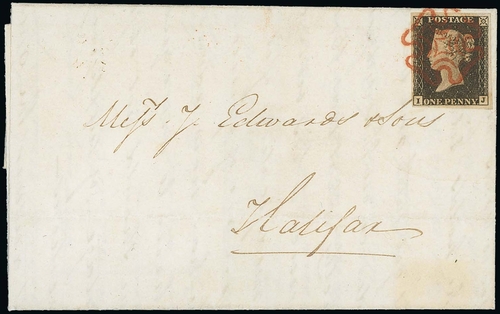 POSTAGE
I ONE PENNY J
Messrs J. Edwards & Sons
Halifax